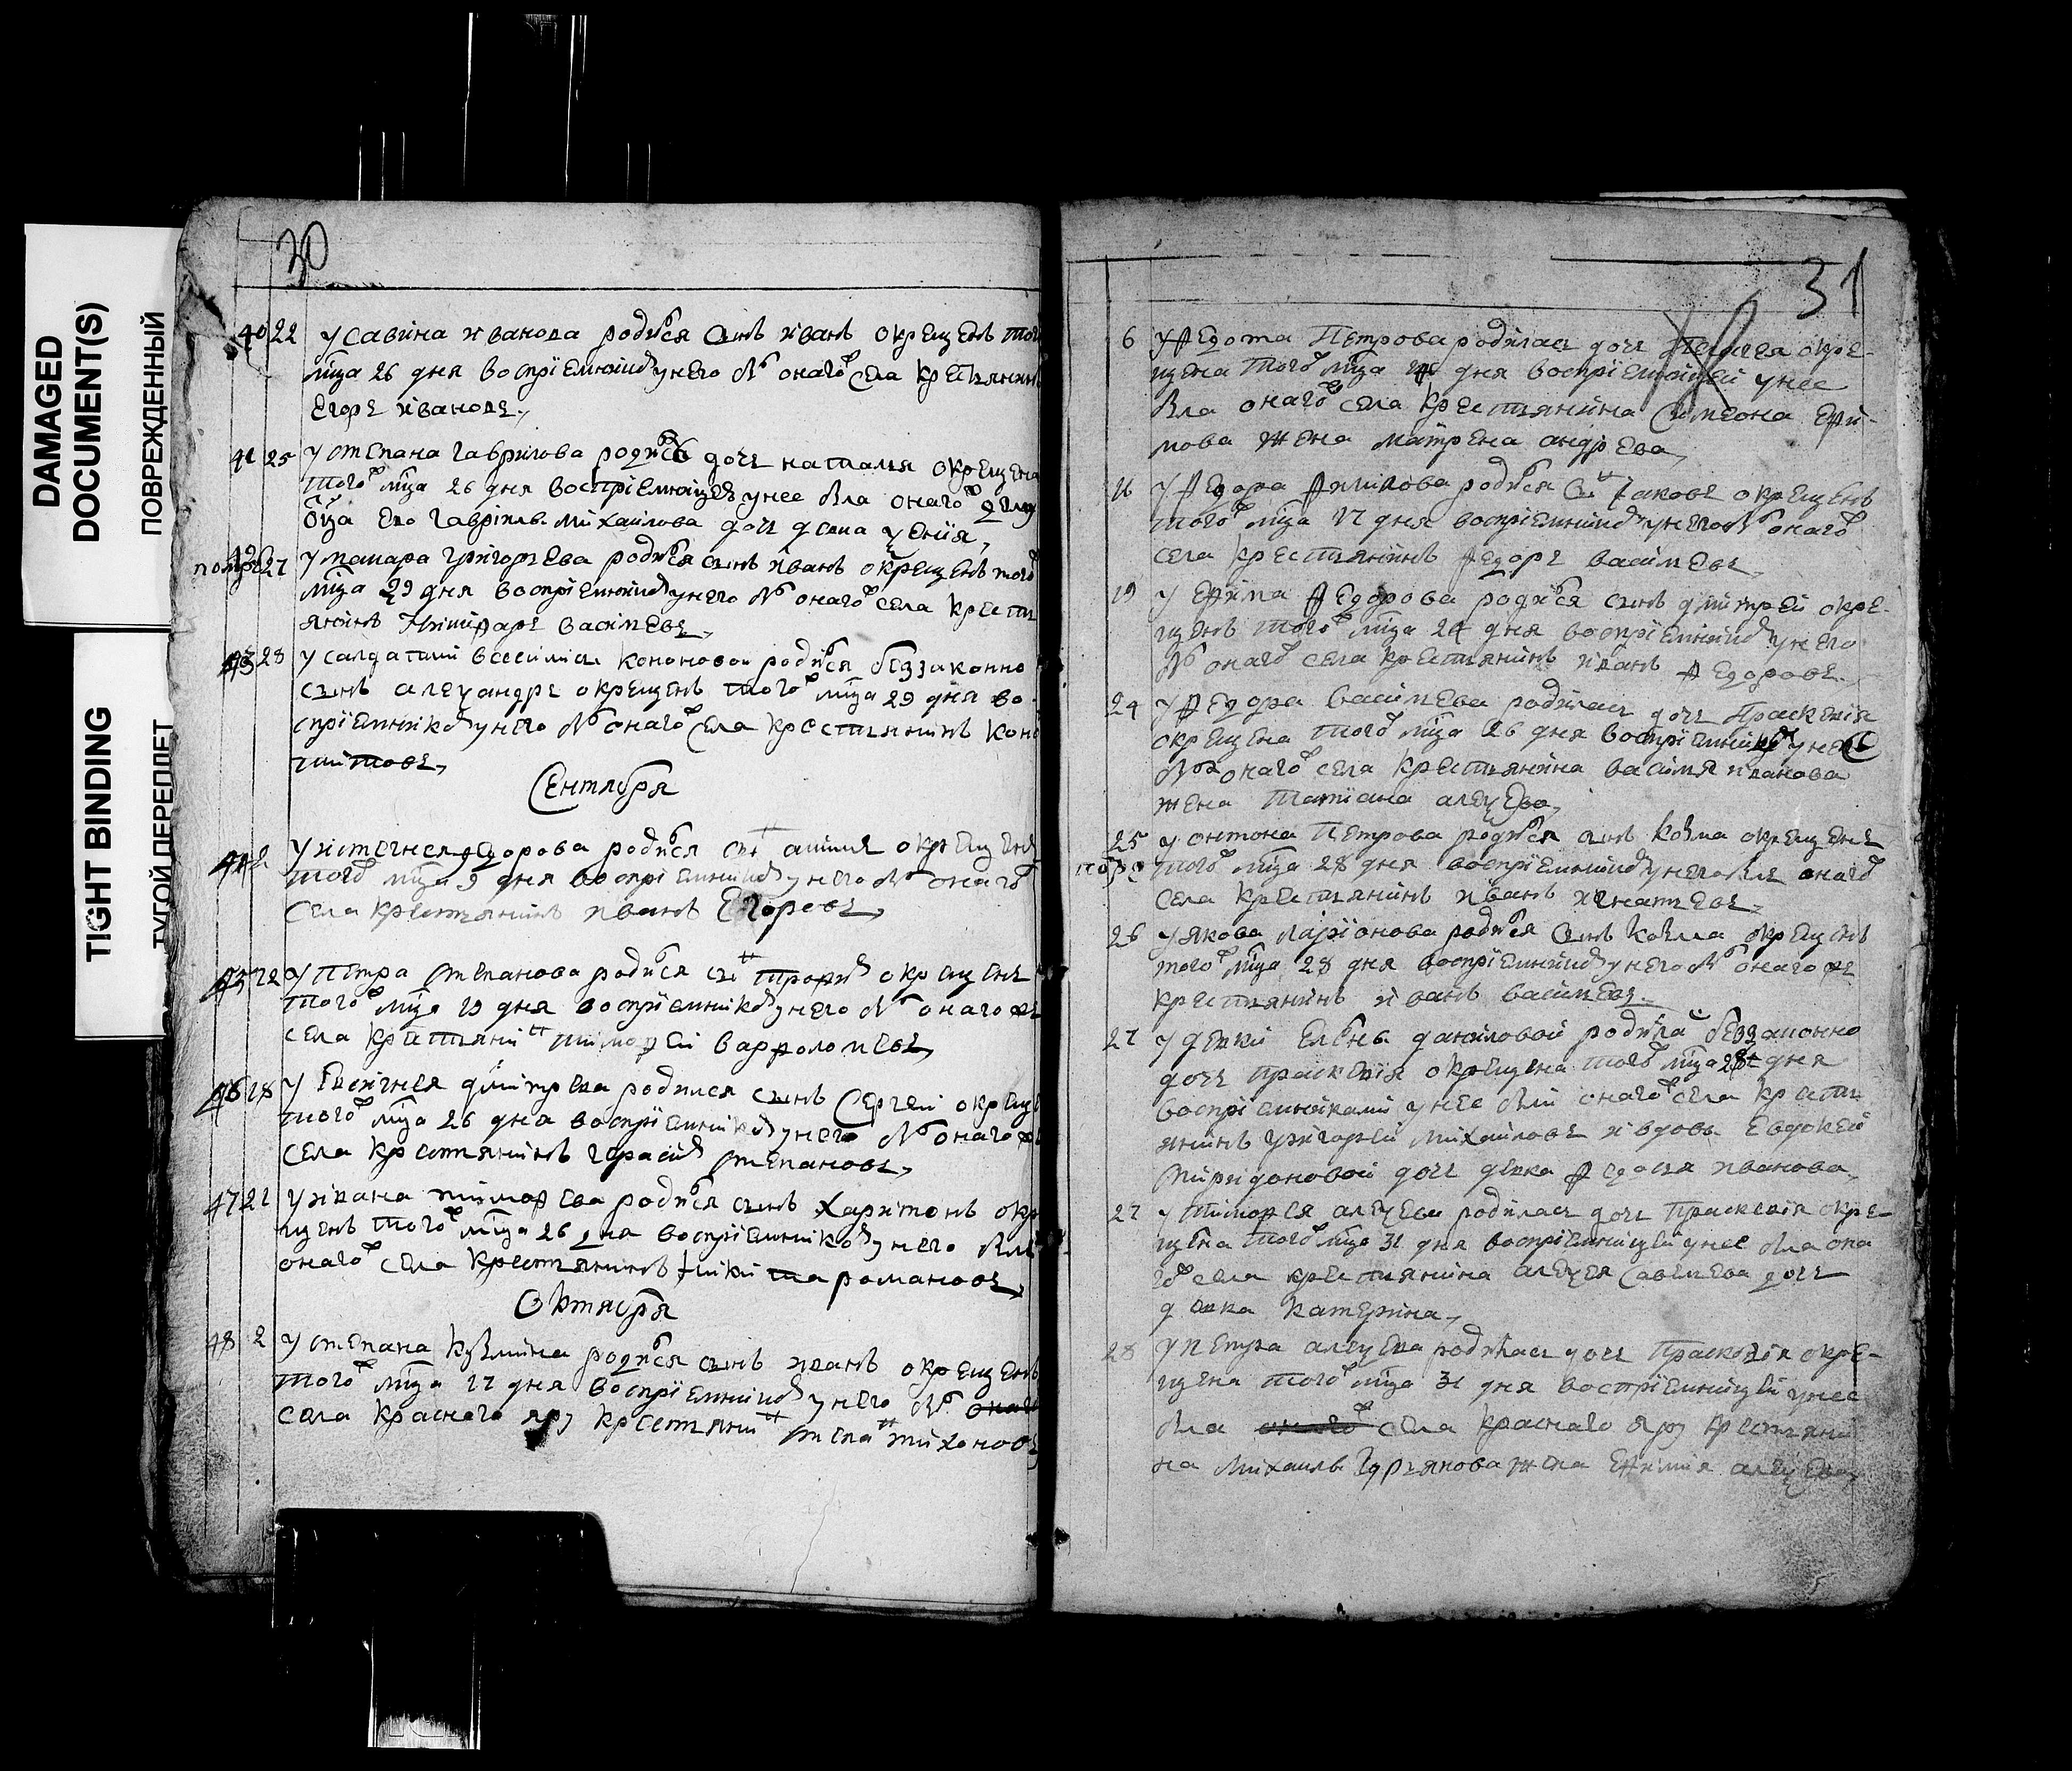 DAMAGED
DOCUMENT(S)
ПОВРЕЖДЕННЫЙ
TIGHT BINDING
ТУГОЙ ПЕРЕПЛЕТ
30
40 22 у савина иванова родися сынъ иванъ окрещенъ того
мца 26 дня воспрiемникъ у него бы онаго села крестьянинъ
егоръ ивановъ
41 25 у степана гаврилова родися дочь наталия окрещена
того мца 26 дня воспрiемницей у нее была онаго
отца его гаврилы михаилова дочь девица
помре 27 у макара григорьева родися сынъ иванъ окрещенъ того
мца 29 дня воспрiемникъ у него бы онаго села кресть
янинъ никифоръ васильевъ
43 28 у салдатки кононовои родися беззаконно
сынъ александръ окрещенъ того мца 29 дня во
спрiемникъ у него бы онаго села крестьянинъ
титовъ
Сентября
44 2 у родися сынъ окрещенъ
того мца 9 дня воспрiемникъ у него бы онаго
села крестьянинъ иванъ Егоровъ
45 12 у петра степанова родися сынъ трофимъ окрещенъ
того мца 19 дня воспрiемникъ у него бы онаго же
села крестьянинъ тимофей варфоломеевъ
46 18 у Евсигнея дмитрева родился сынъ Сергей окреще
того мца 26 дня воспрiемникъ у него бы онаго
села крестьянинъ герасимъ степановъ
47 21 у ивана тимофеева родися сынъ Харитонъ окре
щенъ того мца 26 дня воспрiемникъ у него былъ
онаго села крестьянинъ никита романовъ
Октября
48 2 у степана кузмина родися сынъ иванъ окрещенъ
того мца 17 дня воспрiемникъ у него бы
села краснаго яру крестьянинъ степанъ тихоновъ
31
6 у федота Петрова родилась дочь Пелагея окре-
щена того мца дня воспрiемницей у нее
была онаго села крестьянина Симеона ефи-
мова жена матрена андрева
16 у федора филипова родися сынъ яковъ окрещенъ
того мца 17 дня воспрiемникъ у него бы онаго
села крестьянинъ федоръ васильевъ
19 у ефима федорова родися сынъ дмитрей окре-
щенъ того мца 24 дня воспрiемникъ у него
бы онаго села крестьянинъ иванъ федоровъ
24 у федора васильева родилась дочь Прасковiя
окрещена того мца 26 дня у нее
онаго села крестьянина василя иванова
жена татiана алексева
25 у онтона Петрова родися сынъ козма окрещенъ
помре того мца 28 дня воспрiемникъ у него былъ онаго
села крестьянинъ иванъ игнатьевъ
26 у якова ларiонова родися сынъ козма окрещенъ
того мца 28 дня воспрiемникъ у него бы онаго же
крестьянинъ иванъ васильевъ
27 у девки елены даниловой родила беззаконно
дочь прасковiя окрещена того мца 28 дня
воспрiемниками у нее были онаго села кресть
янинъ григорей михаиловъ и вдовы Евдокеи
спиридоновой дочь девка федосья иванова
27 у тимофея алексева родилась дочь Прасковiя окре-
щена того мца 31 дня воспрiемницей у нее была она
го села крестьянина алексея савельева дочь
девка катерина
28 у петра алексева родилась дочь Прасковiя окре-
щена того мца 31 дня воспрiемницей у нее
была онаго села краснаго яру крестьяни
на михаилы жена ефимия алексева